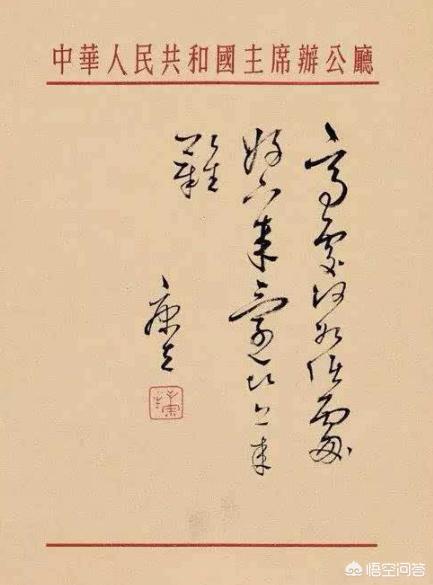 中華人民共和國主席辦公廳
高處何如低處
好下來還比上來
難
康生
悟空问答